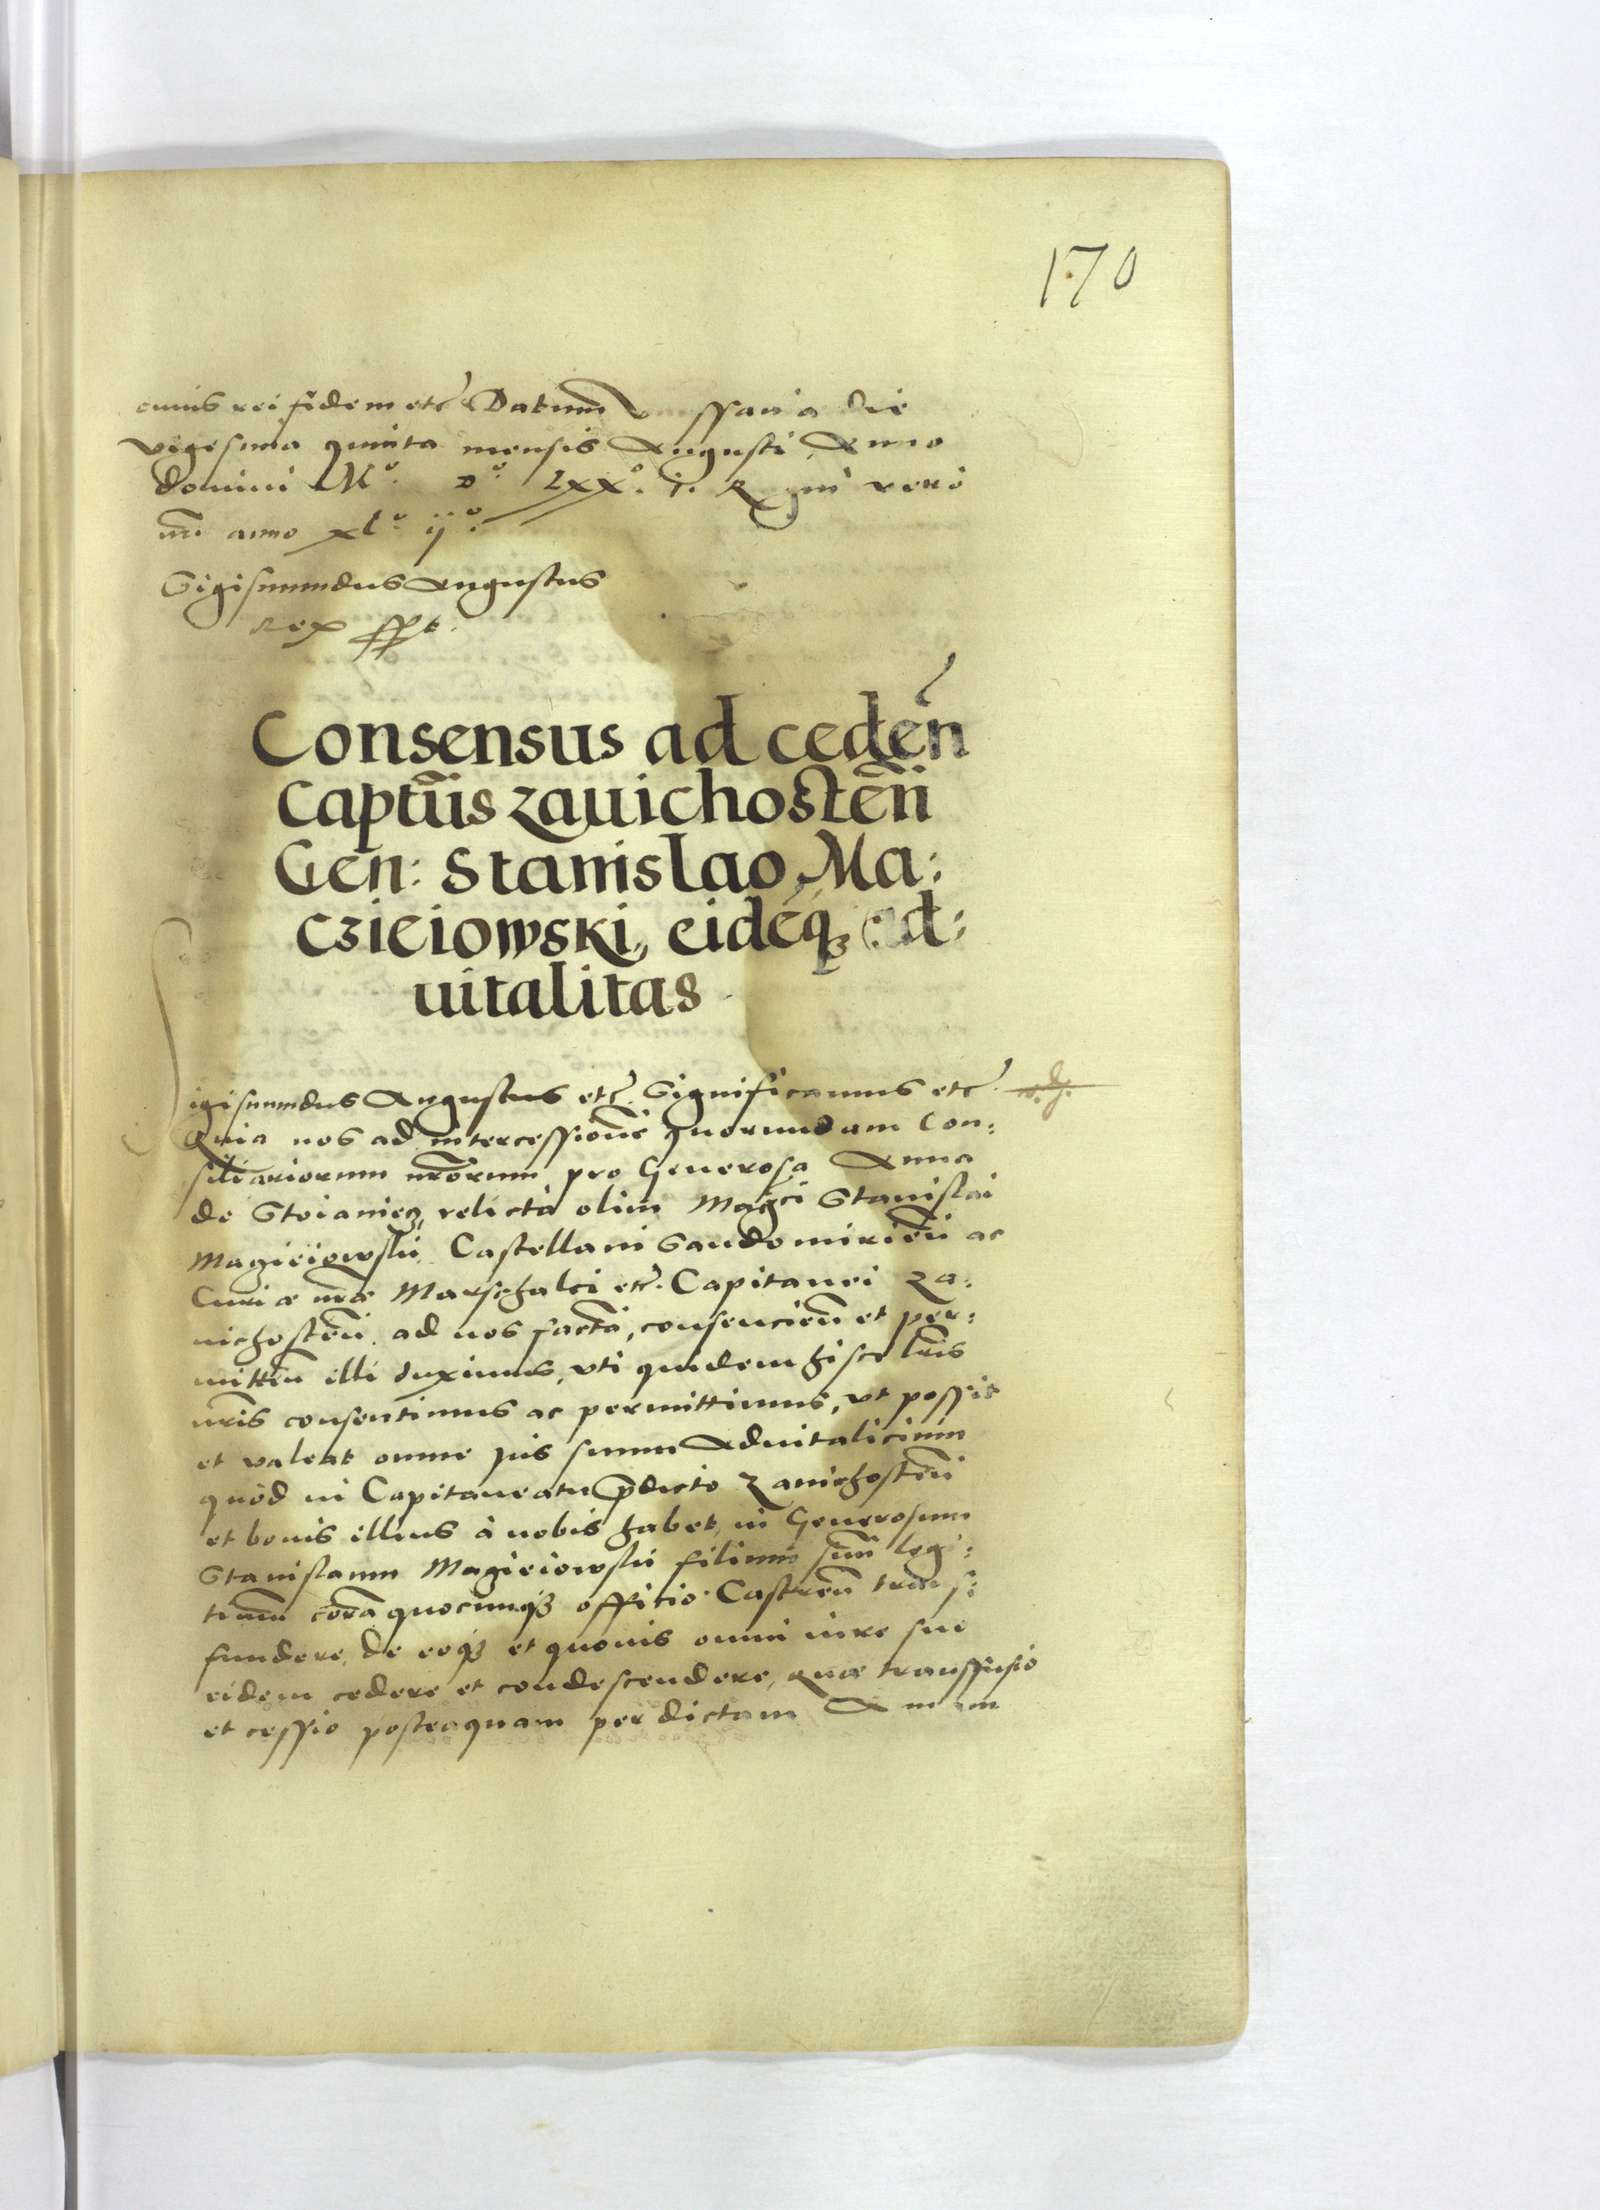 170
cuius rei fidem etc̃ Datum ssauia die
vigesima quinta mensis Augusti, Anno
domini Mº. Dº. Lxxº. j. Regni vero
nrĩ anno xlº ijº.
Sigismundus Augustus
Rex sspt.
Consensus ad ceden̄
Captūis zauichosten̄
Gen: Stanislao Ma:
czieiowski, eidéqȝ ad:
uitalitas
igismundus Augustus etc̃. Significamus etc̃.
Quia nos ad intercessionē quorundam Con:
siliariorum nr̄orum pro Generosa Anna
de Stoianiecz, relicta olim Magci Stanislai
Macieiowski Castellani Sandomirien̄ ac
Curiæ nr̄æ Marschalci etc̃. Capitanei Za:
uichosten̄ ad nos factā, consencien̄ et per:
mitten̄ illi duximus, vti quidem hisce lr̄is
nr̄is consentimus ac permittimus, vt possit
et valeat omne jus suum Aduitalicium
quod in Capitaneatu p̄dicto Zauichosten̄
et bonis illius à nobis habet, in Generosum
Stanislaum Macieiowski filium suū legi:
timum corā quocunqȝ officio Castren̄ trans:
fundere, de eoqȝ et quouis omni iure suo
eidem cedere et condescendere, quæ transfusio
et cessio posteaquam per dictam Annam